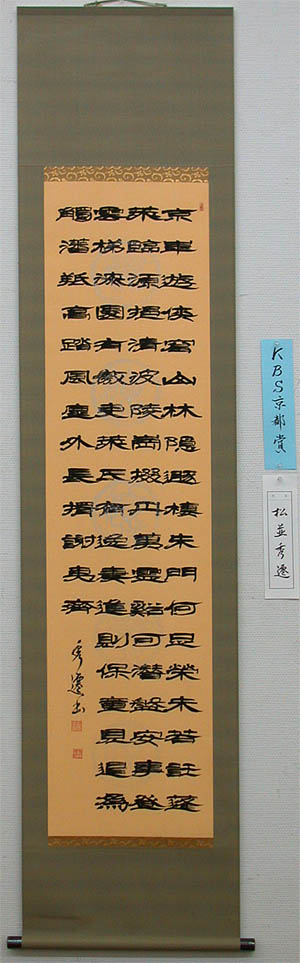 京華遊俠窟山林隱遯棲朱門何足榮未若託蓬
萊臨源挹清波陵岡掇丹荑靈谿可潛盤安事登
雲梯漆園有傲吏萊氏有逸妻進則保龍見退為
觸藩羝高蹈風塵外長揖謝夷齊
秀遷書
KBS京都賞
松並秀遷